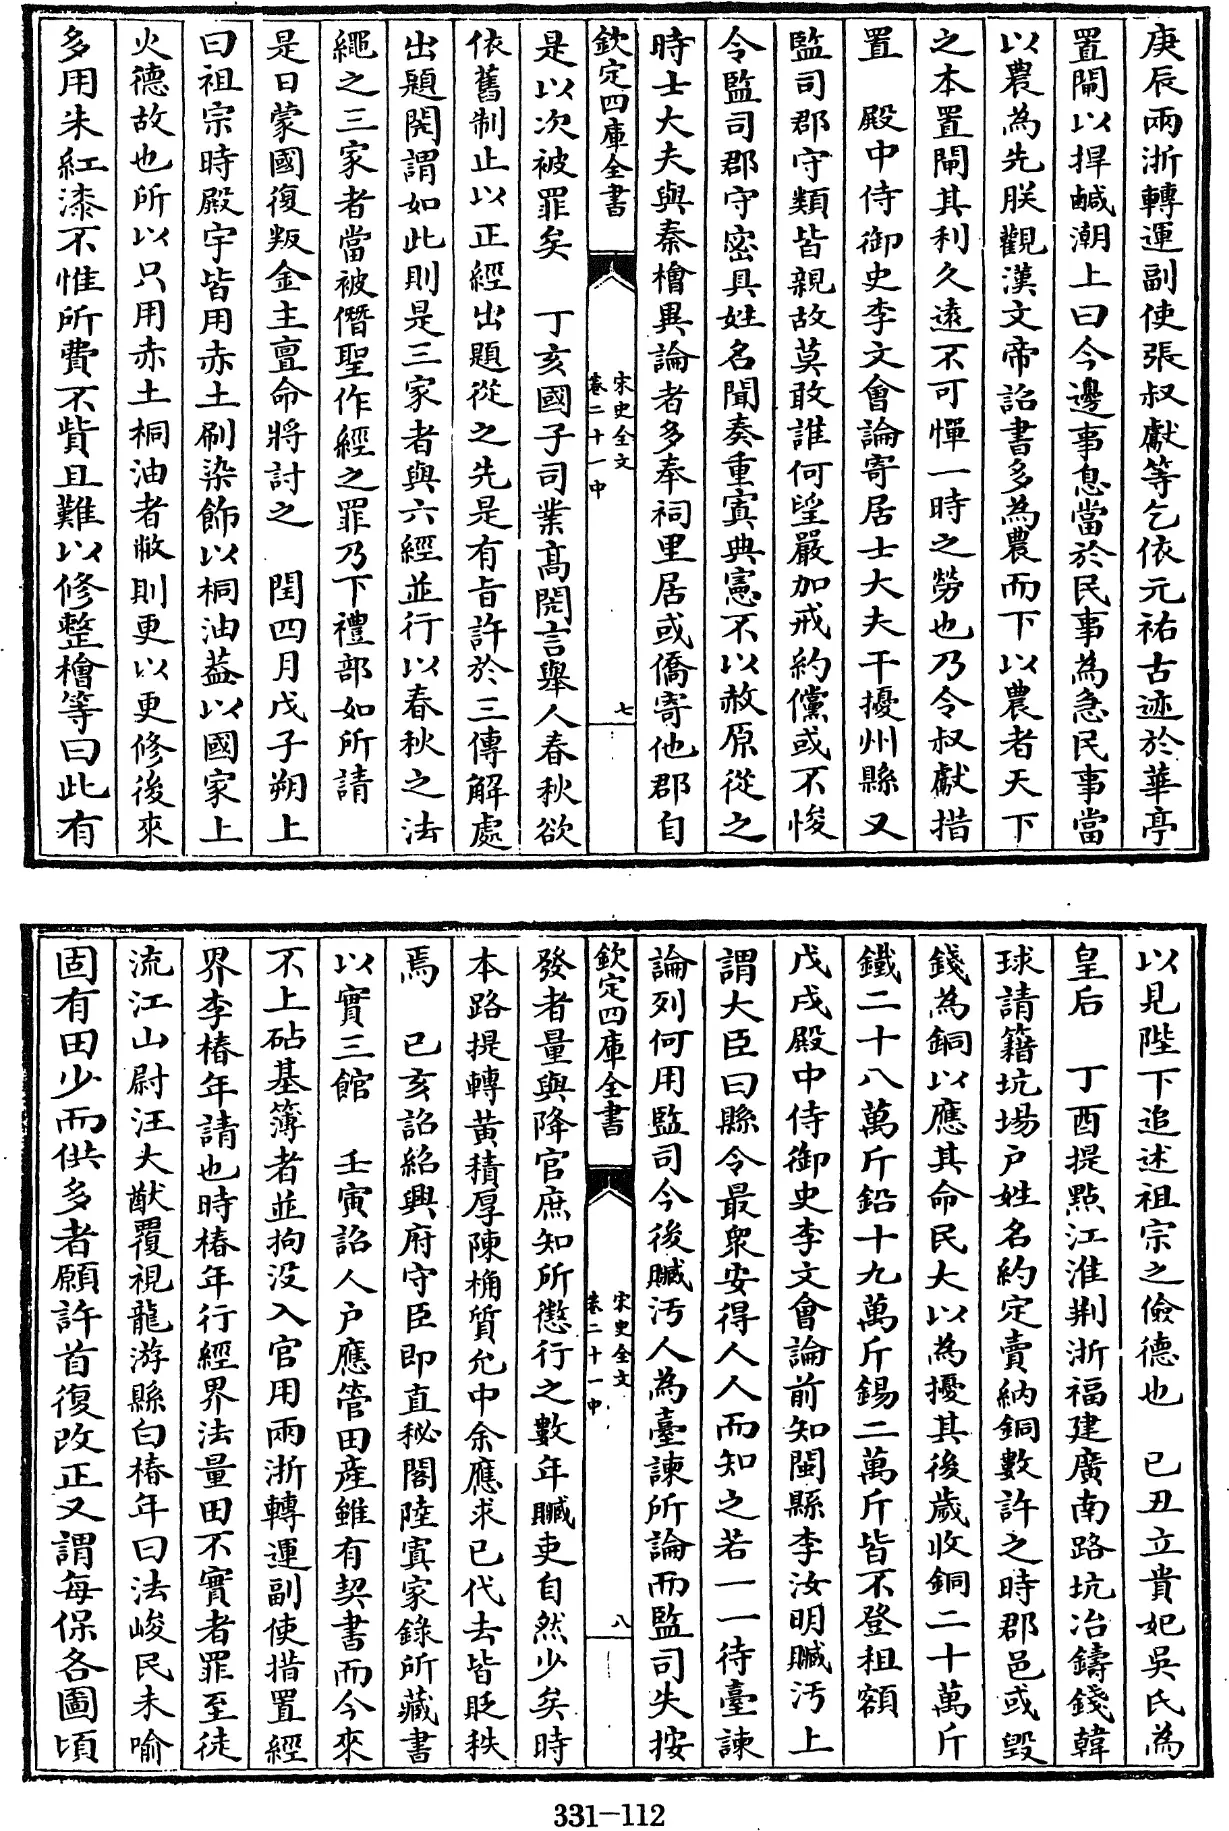 庚辰兩浙轉運副使張叔獻等乞依元祐古迹於華亭
置閘以捍鹹潮上曰今邊事息當於民事為急民事當
以農為先朕觀漢文帝詔書多為農而下以農者天下
之本置閘其利久遠不可憚一時之勞也乃令叔獻措
置　殿中侍御史李文會論寄居士大夫干擾州縣又
監司郡守類皆親故莫敢誰何望嚴加戒約儻或不悛
令監司郡守密具姓名聞奏重寘典憲不以赦原從之
時士大夫與秦檜異論者多奉祠里居或僑寄他郡自
欽定四庫全書　宋史全文卷二十一中　七
是以次被罪矣　丁亥國子司業高閌言舉人春秋欲
依舊制止以正經出題從之先是有旨許於三傳解處
出題閌謂如此則是三家者與六經並行以春秋之法
繩之三家者當被僭聖作經之罪乃下禮部如所請
是日蒙國復叛金主亶命將討之　閏四月戊子朔上
曰祖宗時殿宇皆用赤土刷染飾以桐油葢以國家上
火德故也所以只用赤土桐油者敝則更以更修後來
多用朱紅漆不惟所費不貲且難以修整檜等曰此有
以見陛下追述祖宗之儉德也　已丑立貴妃吳氏為
皇后　丁酉提點江淮荆浙福建廣南路坑冶鑄錢韓
球請籍坑場户姓名約定賣納銅數許之時郡邑或毁
錢為銅以應其命民大以為擾其後歲收銅二十萬斤
鐵二十八萬斤鉛十九萬斤錫二萬斤皆不登租額
戊戌殿中侍御史李文會論前知閩縣李汝明贓汚上
謂大臣曰縣令最衆安得人人而知之若一一待臺諫
論列何用監司今後贓汚人為臺諫所論而監司失按
欽定四庫全書　宋史全文卷二十一中　八
發者量與降官庶知所懲行之數年贓吏自然少矣時
本路提轉黄積厚陳桷質允中余應求已代去皆貶秩
焉　已亥詔紹興府守臣即直秘閣陸寘家錄所藏書
以實三館　壬寅詔人户應管田產雖有契書而今來
不上砧基簿者並拘没入官用兩浙轉運副使措置經
界李椿年請也時椿年行經界法量田不實者罪至徒
流江山尉汪大猷覆視龍游縣白椿年曰法峻民未喻
固有田少而供多者願許首復改正又謂每保各圖頃
331-112